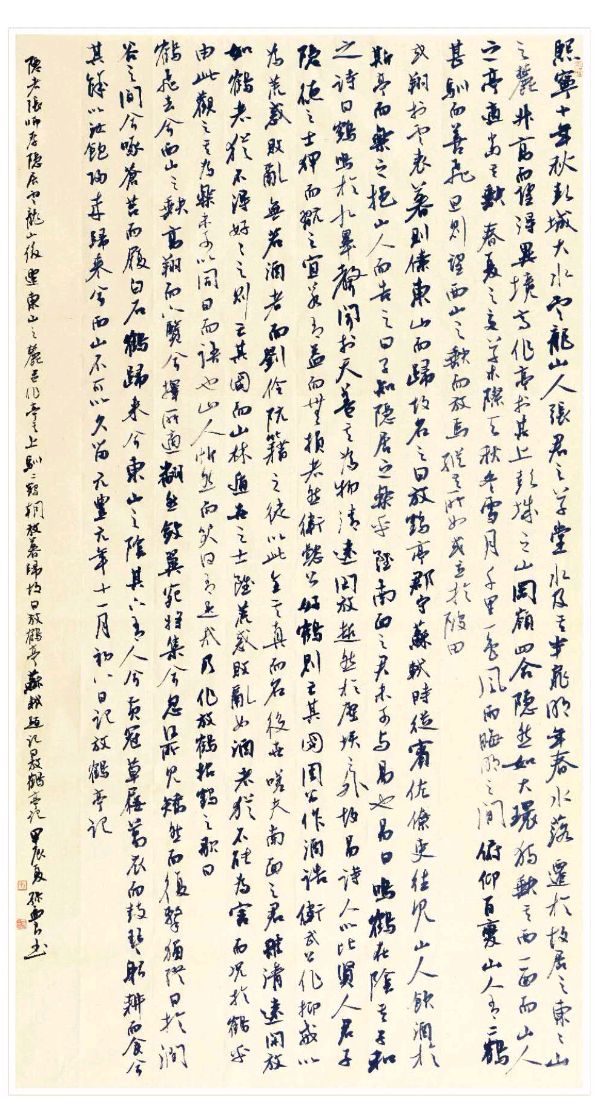 熙寧十年秋彭城大水雲龍山人張君之草堂水及其半扉明年春水落遷於故居之東東山
之麓升高而望得異境焉作亭於其上彭城之山岡嶺四合隱然如大環獨缺其西一面而山人
之亭適當其缺春夏之交草木際天秋冬雪月千里一色風雨晦明之間俯仰百變山人有二鶴
甚馴而善飛旦則望西山之缺而放焉縱其所如或立於陂田
或翔於雲表暮則傃東山而歸故名之曰放鶴亭郡守蘇軾時從賓佐僚吏往見山人飲酒於
斯亭而樂之挹山人而告之曰子知隱居之樂乎雖南面之君未可與易也易曰鳴鶴在陰其子和
之詩曰鶴鳴於九皋聲聞於天蓋其為物清遠閑放超然於塵埃之外故易詩人以比賢人君子
隱德之士狎而玩之宜若有益而無損者然衛懿公好鶴則亡其國周公作酒誥衛武公作抑戒以
為荒惑敗亂無若酒者而劉伶阮籍之徒以此全其真而名後世嗟夫南面之君雖清遠閑放
如鶴者猶不得好好之則亡其國而山林遁世之士雖荒惑敗亂如酒者猶不能為害而況於鶴乎
由此觀之其為樂未可以同日而語也山人忻然而笑曰有是哉乃作放鶴招鶴之歌曰
鶴飛去兮西山之缺高翔而下覽兮擇所適翻然斂翼宛將集兮忽何所見矯然而復擊獨終日於澗
谷之間兮啄蒼苔而履白石鶴歸來兮東山之陰其下有人兮黃冠草屨葛衣而鼓琴躬耕而食兮
其餘以汝飽歸來歸來兮西山不可以久留元豐元年十一月初八日記放鶴亭記
隱者張師厚隱居雲龍山後遷東山之麓並作亭其上馴二鶴朝放暮歸故曰放鶴亭蘇軾題記曰放鶴亭記甲辰夏書